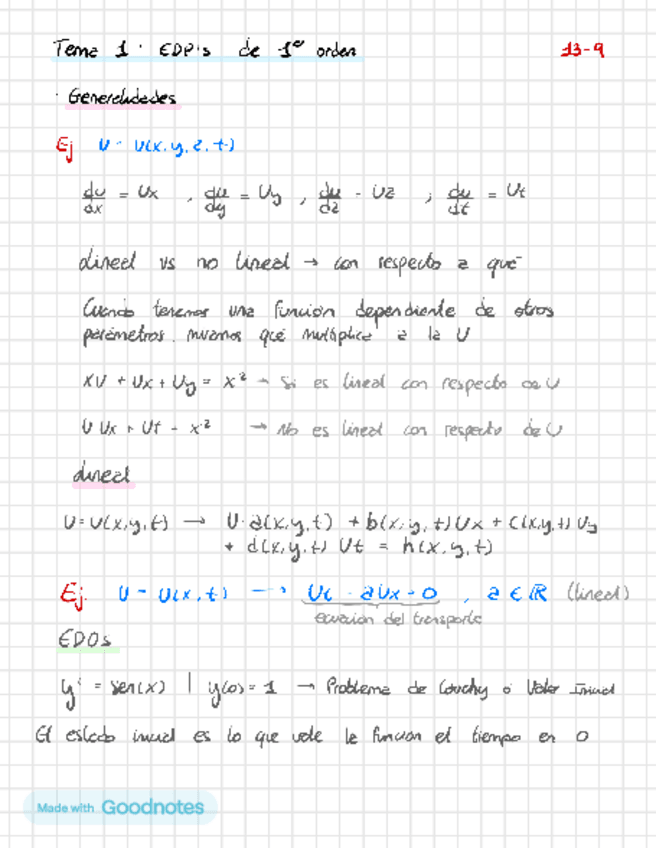 Tema 1 · EDP's de 1er orden
13-9
· Generalidades
Ej U = U(x, y, z, t)
du/dx = Ux , du/dy = Uy , du/dz = Uz ; du/dt = Ut
Lineal vs no lineal → con respecto a qué
Cuando tenemos una función dependiente de otros
parámetros, miramos qué multiplica a la U
XU + Ux + Uy = x² → Si es lineal con respecto de U
U Ux + Ut = x² → No es lineal con respecto de U
Lineal
U=U(x,y,t) → U·a(x,y,t) + b(x,y,t)Ux + c(x,y,t)Uy
+ d(x,y,t) Ut = h(x,y,t)
Ej. U = U(x,t) → Ut - aUx = 0 , a ∈ ℝ (lineal)
ecuación del transporte
EDOs
y' = sen(x) | y(0) = 1 → Problema de Cauchy o Valor Inicial
El estado inicial es lo que vale la función el tiempo en 0
Made with Goodnotes